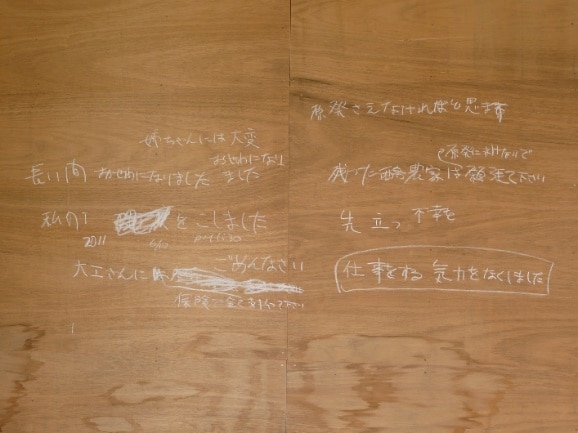 姉ちゃんには大変
おせわになり
長い間 おせわになりました ました
私の をこしました
2011 6/10 PM1:30
大工さんに ごめんなさい
保険 金で て下さい
原発さえなければと思ます
原発にまけないで
残った酪農家は頑張て下さい
先立つ不幸を
仕事をする気力をなくしました